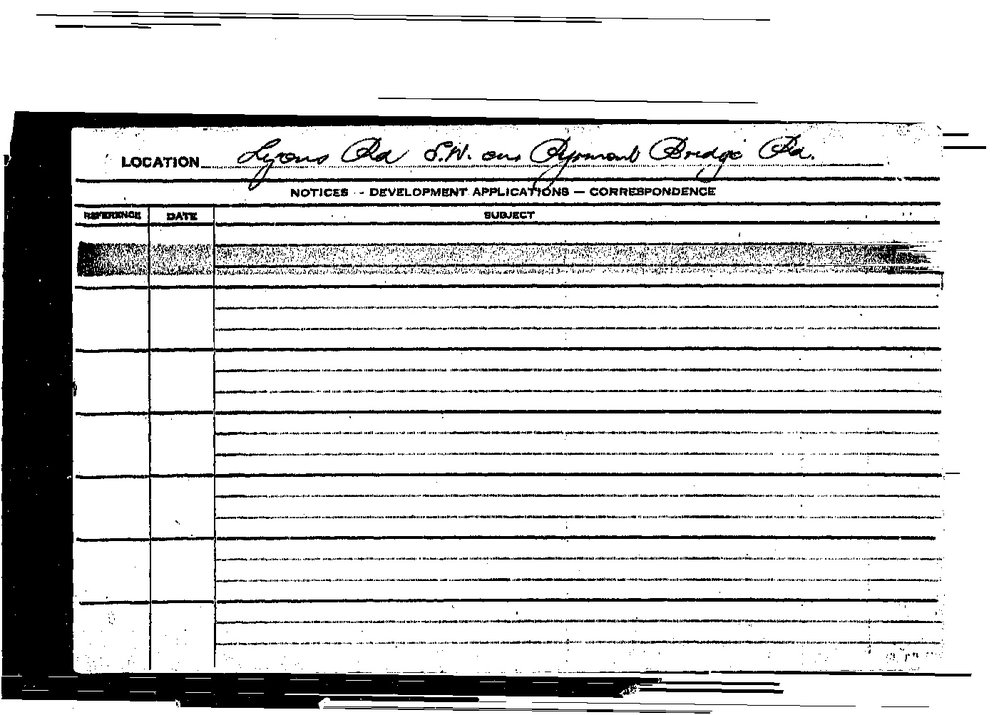 LOCATION Lyons Rd S.W. cnr Pyrmont Bridge Rd.
NOTICES - DEVELOPMENT APPLICATIONS — CORRESPONDENCE
REFERENCE DATE SUBJECT